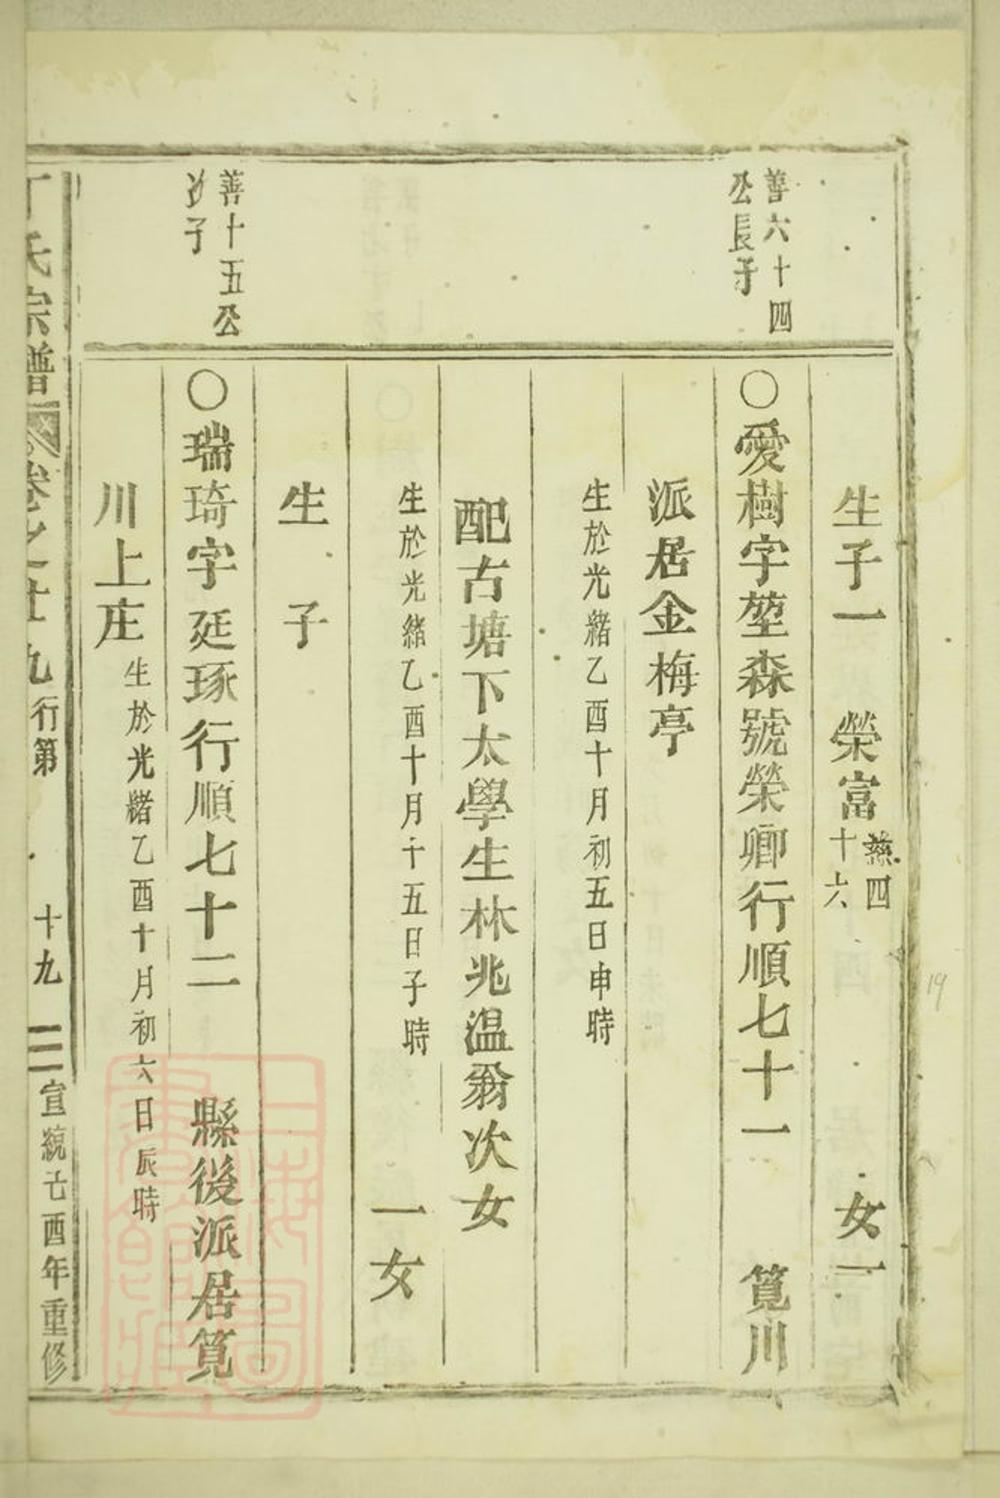 生子一　榮富慈四十六　女一
善六十四
公長子
〇愛樹字堃森號榮卿行順七十一　筧川
派居金梅亭
生於光緒乙酉十月初五日申時
配古塘下太學生林兆温翁次女
生於光緒乙酉十月十五日子時　一女
生　子
善十五公
次子
〇瑞琦字延琢行順七十二　縣後派居筧
川上庄生於光緒乙酉十月初六日辰時
丁氏宗譜　卷之廿九行第　十九　宣統己酉年重修
19
上海圖書館藏